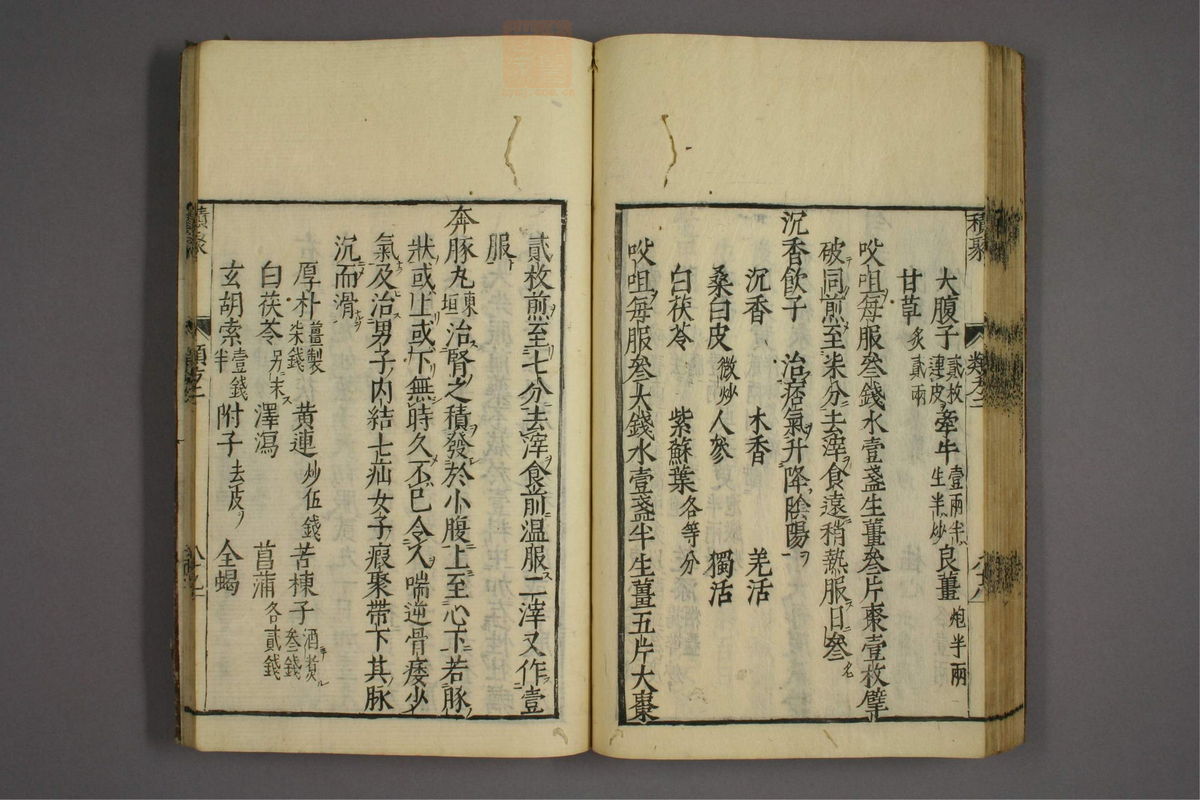 積聚
大腹子貳枚連皮牽牛壹兩半生半炒良薑炮半兩
甘草炙貳兩
㕮咀每服叄錢水壹盞生薑叄片棗壹枚擘
破同煎至柒分去滓食遠稍熱服日叄
沉香飲子 治痞氣升降陰陽
沉香 木香 羌活
桑白皮微炒人參 獨活
白茯苓 紫蘇葉各等分
㕮咀每服叄大錢水壹盞半生薑五片大棗
貳枚煎至七分去滓食前温服二滓又作壹
服
奔豚丸東垣治腎之積發於小腹上至心下若豚
狀或上或下無時久不已令人喘逆骨痿少
氣及治男子内結七疝女子瘕聚帶下其脉
沉而滑
厚朴薑製柒錢黄連炒伍錢苦楝子酒煮叄錢
白茯苓另末澤瀉 菖蒲各貳錢
玄胡索壹錢半附子去皮全蝎
積聚
類方二